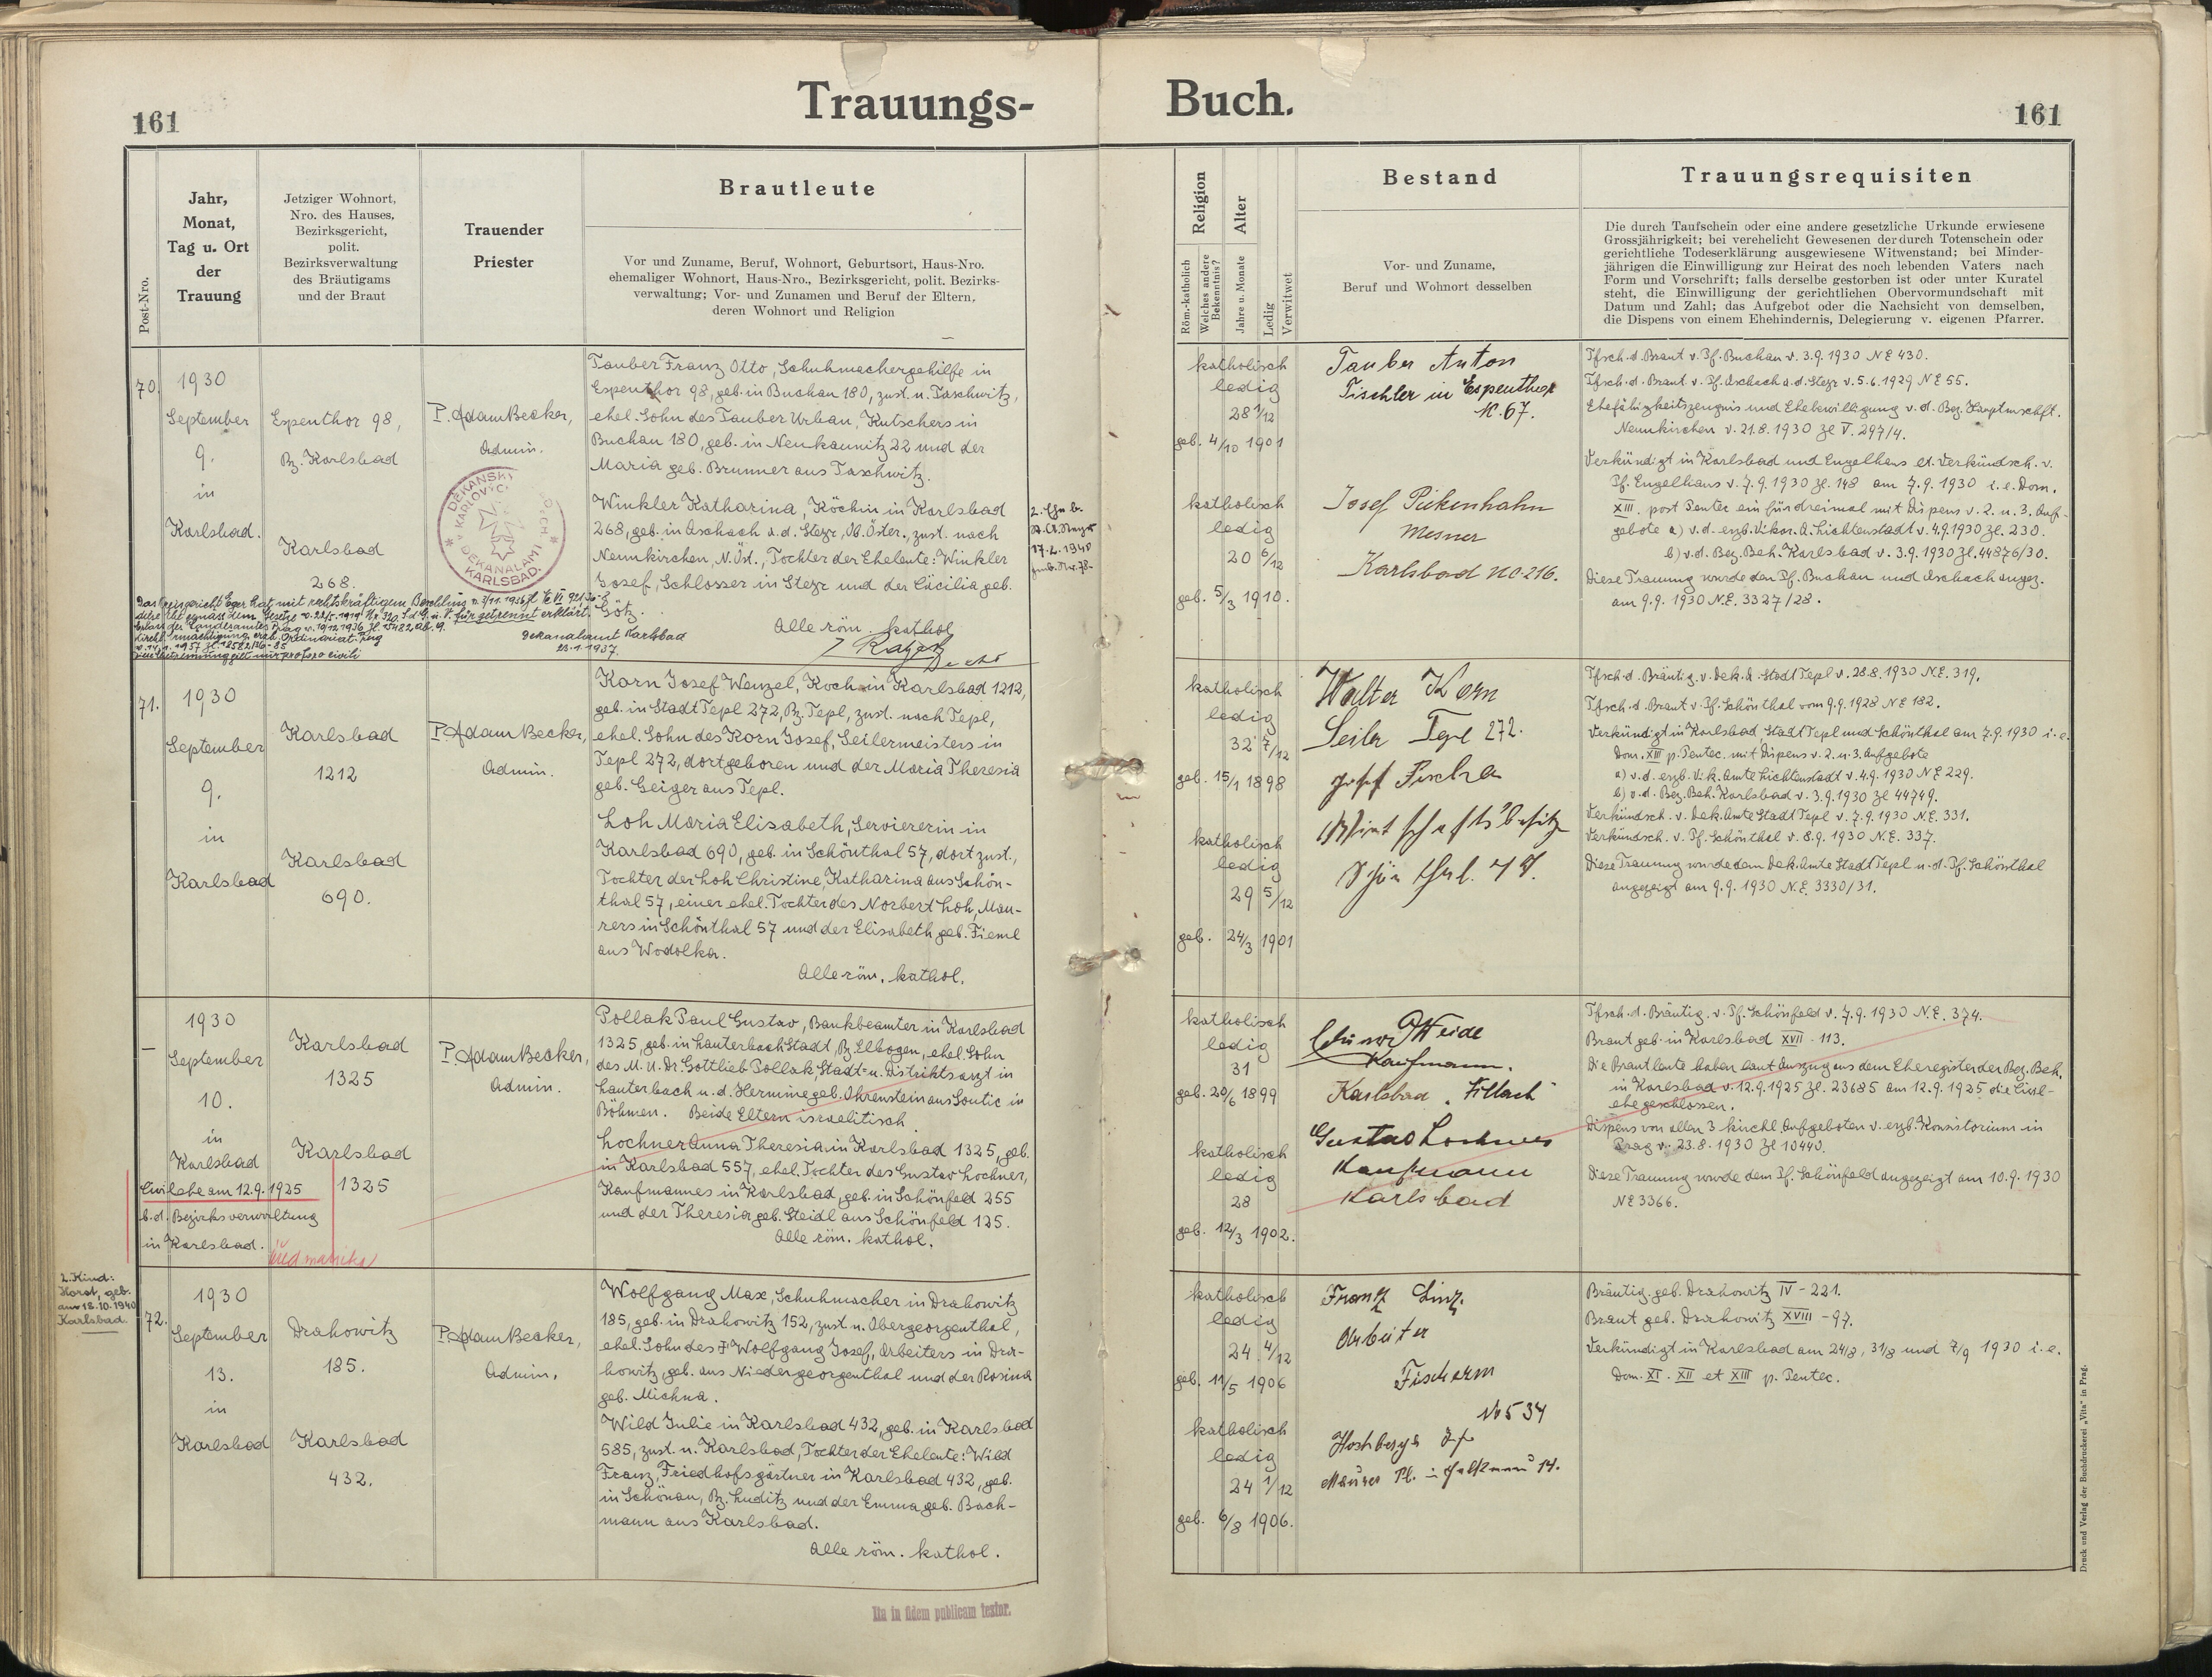 161
Trauungs-
Buch.
161
Post-Nro.
Jahr,
Monat,
Tag u. Ort
der
Trauung
Jetziger Wohnort,
Nro. des Hauses,
Bezirksgericht,
polit.
Bezirksverwaltung
des Bräutigams
und der Braut
Trauender
Priester
Brautleute
Vor und Zuname, Beruf, Wohnort, Geburtsort, Haus-Nro.
ehemaliger Wohnort, Haus-Nro., Bezirksgericht, polit. Bezirks-
verwaltung; Vor- und Zunamen und Beruf der Eltern,
deren Wohnort und Religion
Religion
Röm.-katholisch
Welches andere
Bekenntnis?
Alter
Jahre u. Monate
Ledig
Verwitwet
Bestand
Vor- und Zuname,
Beruf und Wohnort desselben
Trauungsrequisiten
Die durch Taufschein oder eine andere gesetzliche Urkunde erwiesene
Grossjährigkeit; bei verehelicht Gewesenen der durch Totenschein oder
gerichtliche Todeserklärung ausgewiesene Witwenstand; bei Minder-
jährigen die Einwilligung zur Heirat des noch lebenden Vaters nach
Form und Vorschrift; falls derselbe gestorben ist oder unter Kuratel
steht, die Einwilligung der gerichtlichen Obervormundschaft mit
Datum und Zahl; das Aufgebot oder die Nachsicht von demselben,
die Dispens von einem Ehehindernis, Delegierung v. eigenen Pfarrer.
70.
1930
September
9.
in
Karlsbad.
Espenthor 98,
Bz. Karlsbad
Karlsbad
268.
P. Adam Becker,
Admin.
DEKANALAMT
KARLSBAD.
Tauber Franz Otto, Schuhmachergehilfe in
Espenthor 98, geb. in Buchau 180, zust. n. Taschwitz,
ehel. Sohn des Tauber Urban, Kutschers in
Buchau 180, geb. in Neukaunitz 22 und der
Maria geb. Brunner aus Taschwitz.
Winkler Katharina, Köchin in Karlsbad
268, geb. in Aschach a. d. Steyr, Ob. Öster., zust. nach
Neunkirchen, N. Öst., Tochter der Eheleute: Winkler
Josef, Schlosser in Steyr und der Cäcilia geb.
Götz.
Alle röm. kathol.
2. Ehe b.
17.2.1940
Das Kreisgericht Eger hat mit rechtskräftigem Beschluss v. 3/11.1936
für getrennt erklärt.
Dekanalamt Karlsbad
23.1.1937.
katholisch
ledig
28 1/12
geb. 4/10 1901
katholisch
ledig
20 6/12
geb. 5/3 1910.
Tauber Anton
Tischler in Espenthor
N. 67.
Josef Pickenhahn
Mesner
Karlsbad No 216.
Tfsch. d. Braut v. Pf. Buchau v. 3.9.1930 NE 430.
Tfsch. d. Braut v. Pf. Aschach a. d. Steyr v. 5.6.1929 NE 55.
Ehefähigkeitszeugnis und Ehebewilligung v. d. Bez. Hauptmschft.
Neunkirchen v. 21.8.1930 Zl V. 297/4.
Verkündigt in Karlsbad und Engelhaus et. Verkündsch. v.
Pf. Engelhaus v. 7.9.1930 Zl. 148 am 7.9.1930 i. e. Dom.
XIII. post Pentec ein für dreimal mit Dispens v. 2. u. 3. Auf-
gebote a) v. d. erzb. Vikar. A. Lichtenstadt v. 4.9.1930 Zl. 230.
b) v. d. Bez. Beh. Karlsbad v. 3.9.1930 Zl. 44876/30.
Diese Trauung wurde den Pf. Buchau und Aschach angez.
am 9.9.1930 N.E. 3327/28.
71.
1930
September
9.
in
Karlsbad
Karlsbad
1212
Karlsbad
690.
P. Adam Becker,
Admin.
Korn Josef Wenzel, Koch in Karlsbad 1212,
geb. in Stadt Tepl 272, Bz. Tepl, zust. nach Tepl,
ehel. Sohn des Korn Josef, Seilermeisters in
Tepl 272, dortgeboren und der Maria Theresia
geb. Geiger aus Tepl.
Loh Maria Elisabeth, Serviererin in
Karlsbad 690, geb. in Schönthal 57, dort zust.,
Tochter der Loh Christine, Katharina aus Schön-
thal 57, einer ehel. Tochter des Norbert Loh, Mau-
rers in Schönthal 57 und der Elisabeth geb. Fieml
aus Wodolka.
Alle röm. kathol.
katholisch
ledig
32 7/12
geb. 15/1 1898
katholisch
ledig
29 5/12
geb. 24/3 1901
Walter Korn
Seiler Tepl 272.
Josef
Tfsch. d. Bräutig. v. Dek. A. Stadt Tepl v. 28.8.1930 N.E. 319.
Tfsch. d. Braut v. Pf. Schönthal vom 9.9.1928 NE 182.
Verkündigt in Karlsbad, Stadt Tepl und Schönthal am 7.9.1930 i. e.
Dom. XIII p. Pentec. mit Dispens v. 2. u. 3. Aufgebote
a) v. d. erzb. Vik. Amte Lichtenstadt v. 4.9.1930 NE 229.
b) v. d. Bez. Beh. Karlsbad v. 3.9.1930 Zl 44749.
Verkündsch. v. Dek. Amte Stadt Tepl v. 7.9.1930 N.E. 331.
Verkündsch. v. Pf. Schönthal v. 8.9.1930 N.E. 337.
Diese Trauung wurde dem Dek. Amte Stadt Tepl u. d. Pf. Schönthal
angezeigt am 9.9.1930 N.E. 3330/31.
—
1930
September
10.
in
Karlsbad
Civilehe am 12.9.1925
b. d. Bezirksverwaltung
in Karlsbad.
Karlsbad
1325
Karlsbad
1325
P. Adam Becker,
Admin.
Pollak Paul Gustav, Bankbeamter in Karlsbad
1325, geb. in Lauterbach Stadt, Bz. Elbogen, ehel. Sohn
des M. U. Dr. Gottlieb Pollak, Stadt= u. Distriktsarzt in
Lauterbach u. d. Hermine geb. Ohrenstein aus Soutic in
Böhmen. Beide Eltern israelitisch.
Lochner Anna Theresia in Karlsbad 1325, geb.
in Karlsbad 557, ehel. Tochter des Gustav Lochner,
Kaufmannes in Karlsbad, geb. in Schönfeld 255
und der Theresia geb. Steidl aus Schönfeld 125.
Alle röm. kathol.
katholisch
ledig
31
geb. 20/6 1899
katholisch
ledig
28
geb. 12/3 1902.
Weide
Kaufmann.
Karlsbad
Gustav Lochner
Kaufmann
Karlsbad
Tfsch. d. Bräutig. v. Pf. Schönfeld v. 7.9.1930 N.E. 374.
Braut geb. in Karlsbad XVII - 113.
Die Brautleute haben laut Auszug aus dem Eheregister der Bez. Beh.
in Karlsbad v. 12.9.1925 Zl. 23685 am 12.9.1925 die Civil-
ehe geschlossen.
Dispens von allen 3 kirchl. Aufgeboten v. erzb. Konsistorium in
Prag v. 23.8.1930 Zl 10440.
Diese Trauung wurde dem Pf. Schönfeld angezeigt am 10.9.1930
NE 3366.
2. Kind:
Horst, geb.
am 18.10.1940
Karlsbad.
72.
1930
September
13.
in
Karlsbad
Drahowitz
185.
Karlsbad
432.
P. Adam Becker,
Admin.
Wolfgang Max, Schuhmacher in Drahowitz
185, geb. in Drahowitz 152, zust. n. Obergeorgenthal,
ehel. Sohn des † Wolfgang Josef, Arbeiters in Dra-
howitz, geb. aus Niedergeorgenthal und der Rosina
geb. Michna.
Wild Julie in Karlsbad 432, geb. in Karlsbad
585, zust. n. Karlsbad, Tochter der Eheleute: Wild
Franz, Friedhofsgärtner in Karlsbad 432, geb.
in Schönau, Bz. Luditz und der Emma geb. Bach-
mann aus Karlsbad.
Alle röm. kathol.
katholisch
ledig
24 4/12
geb. 11/5 1906
katholisch
ledig
24 1/12
geb. 6/8 1906.
Frantz Linz.
Arbeiter
Fischern
No 534
Maurer
Bräutig. geb. Drahowitz IV - 221.
Braut geb. Drahowitz XVIII - 97.
Verkündigt in Karlsbad am 24/8, 31/8 und 7/9 1930 i. e.
Dom. XI. XII et XIII p. Pentec.
Ita in fidem publicam testor.
Druck und Verlag der Buchdruckerei „Vita" in Prag.